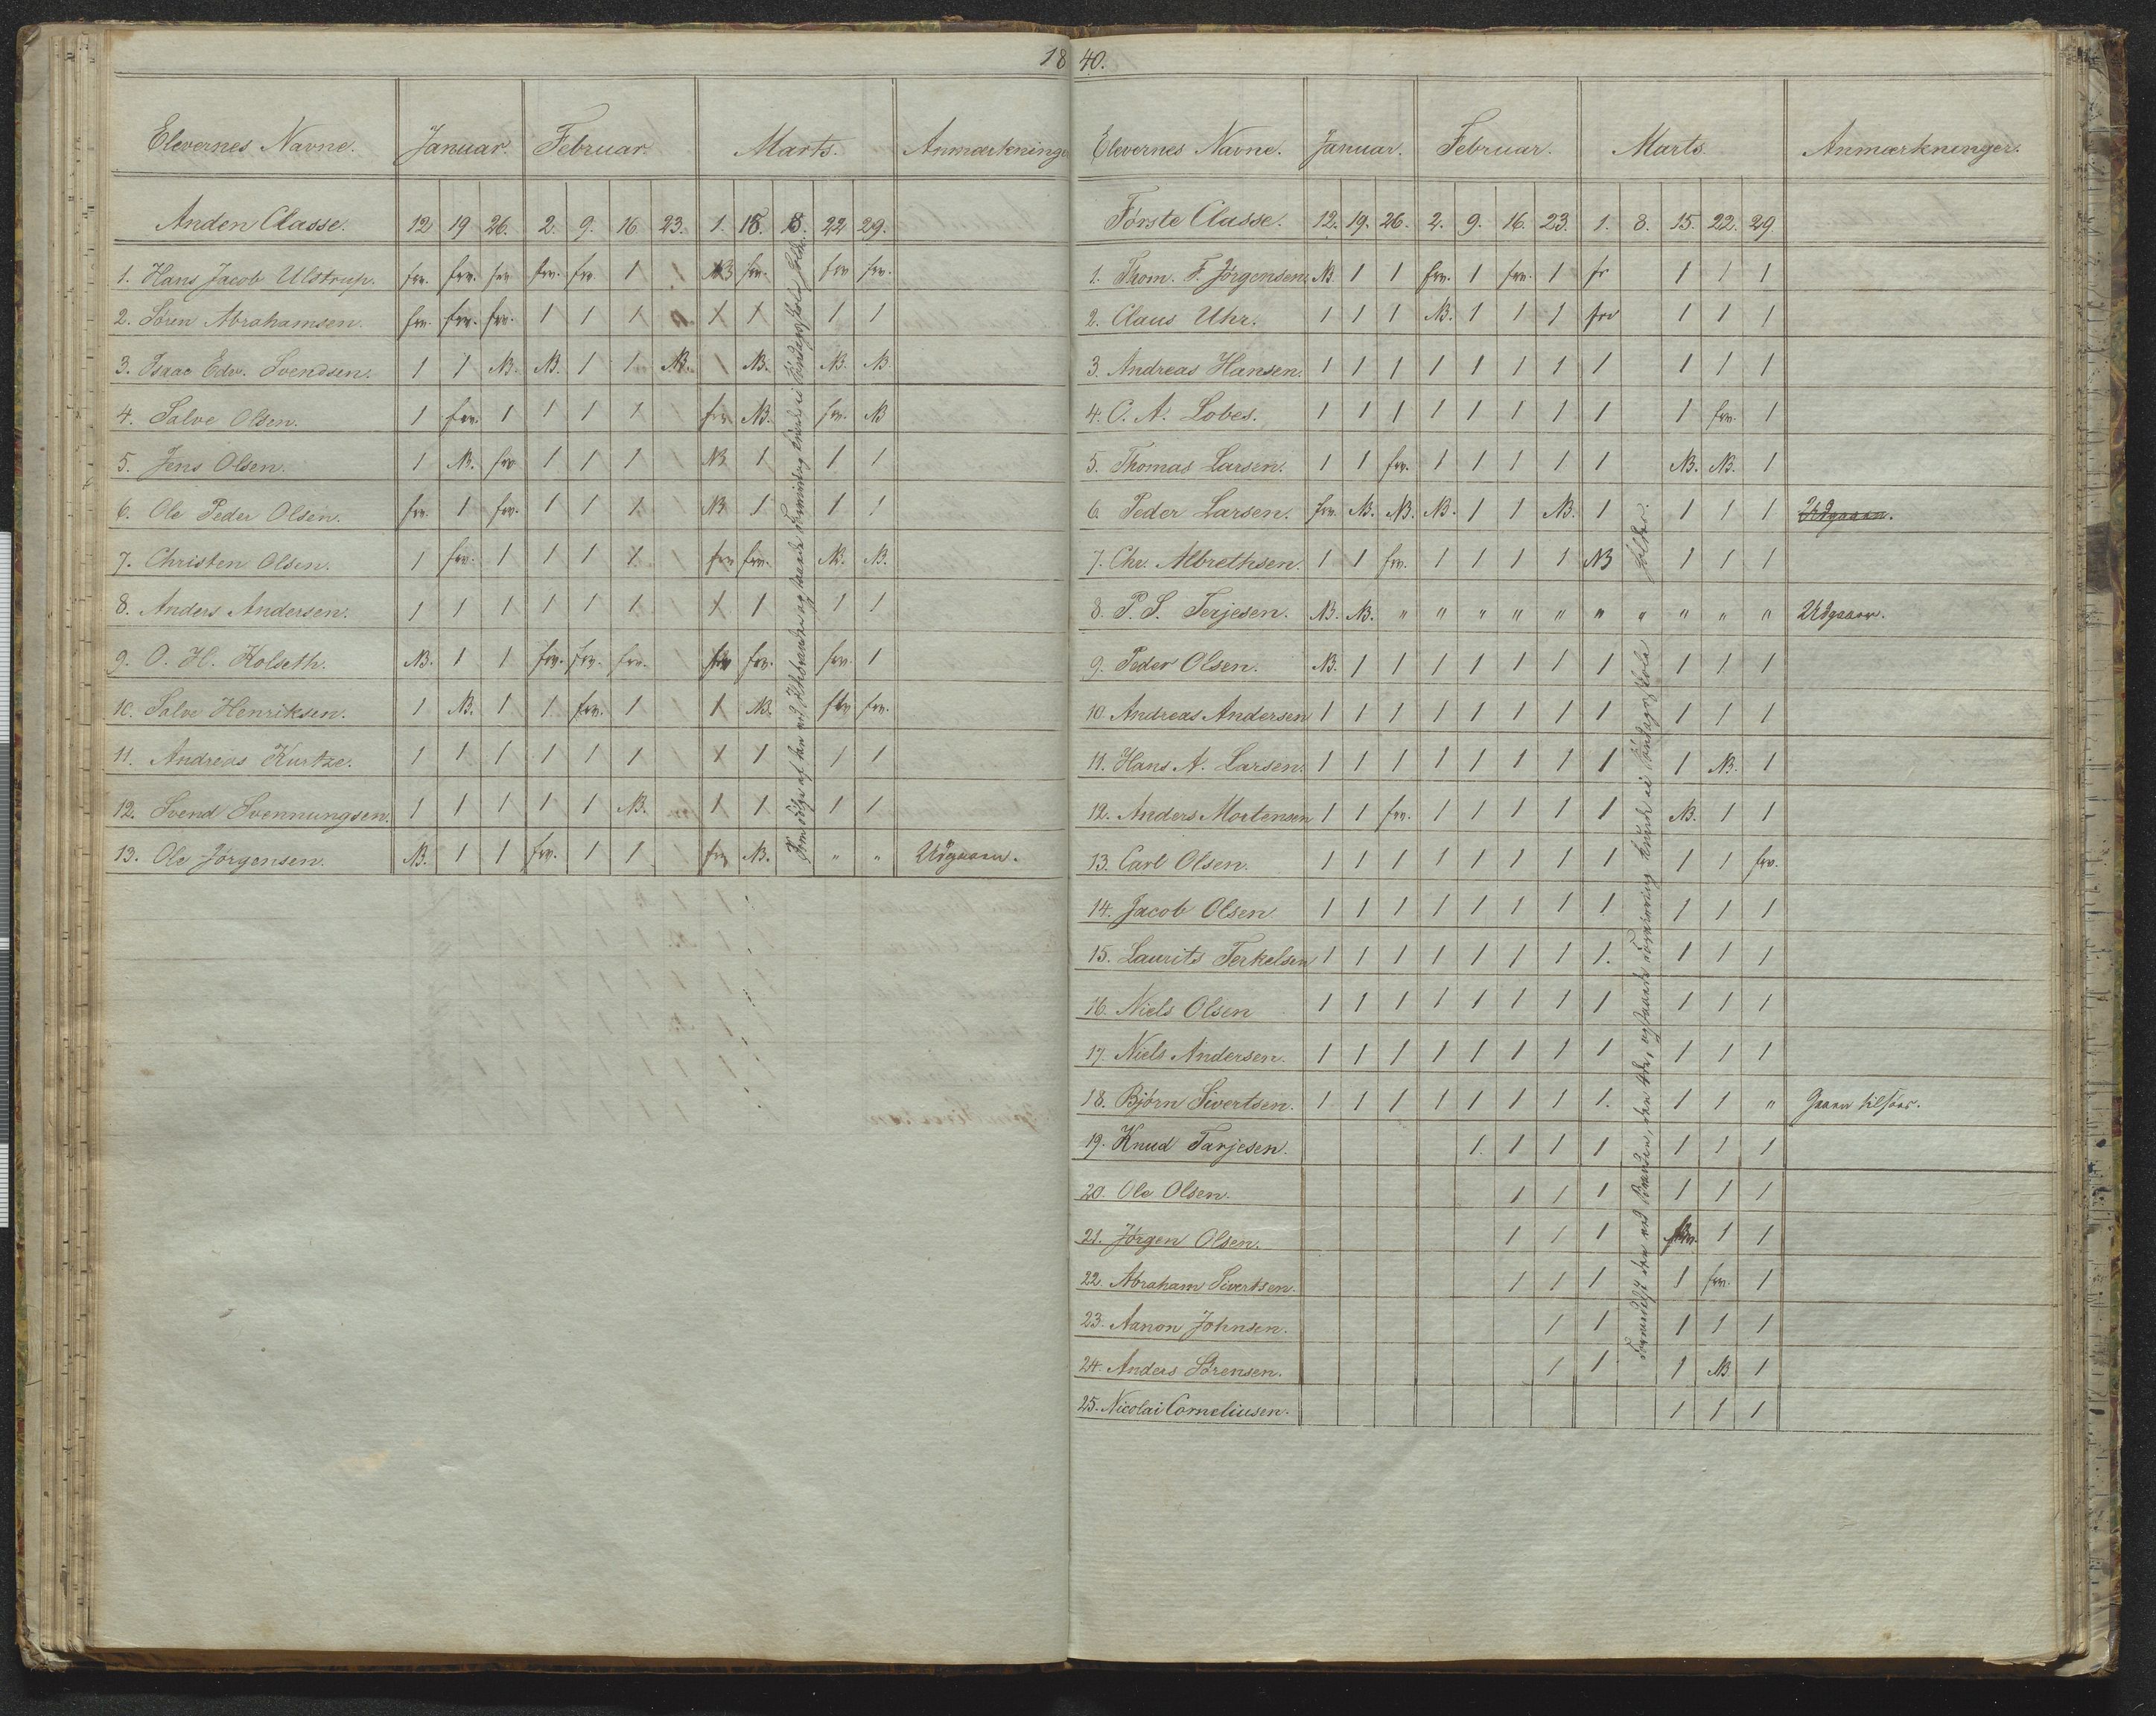 1840.
Elevernes Navne. Januar. Februar. Marts. Anmærkninge
Anden Classe. 12 19 26. 2. 9. 16 23. 1. 15. 8. 22 29.
1. Hans Jacob Ulstrup. frv. frv. frv frv. frv 1 1 NB frv. frv frv.
2. Søren Abrahamsen. frv. frv. frv. 1 1 1 1 1 1 1
3. Isaac Edv. Svendsen. 1 1 NB. NB. 1 1 NB. 1 NB. NB. NB
4. Salve Olsen. 1 frv. 1 1 1 1 1 frv NB. frv. NB
5. Jens Olsen. 1 NB. frv 1 1 1 1 NB 1 1 1
6. Ole Peder Olsen. frv. 1 frv. 1 1 1 1 NB 1 1 1
7. Christen Olsen. 1 frv. 1 1 1 1 1 frv frv. NB. NB.
8. Anders Andersen. 1 1 1 1 1 1 1 1 1 1 1
9. O. H. Kolseth. NB. 1 1 frv. frv. frv. 1 frv frv. frv. 1
10. Salve Henriksen. 1 NB. 1 1 frv. 1 1 1 NB. frv frv.
11. Andreas Kurtze. 1 1 1 1 1 1 1 1 1 1 1
12. Svend Svennungsen. 1 1 1 1 1 NB. frv 1 1 1 1
13. Ole Jørgensen. NB. 1 1 frv. 1 1 1 frv NB. " " Udgaaen.
Formedelst Søndagsskole
Elevernes Navne. Januar. Februar. Marts. Anmærkninger.
Første Classe. 12. 19. 26. 2. 9. 16. 23. 1. 8. 15. 22. 29
1. Thom. F. Jørgensen. NB. 1 1 frv. 1 frv. 1 fr 1 1 1
2. Claus Uhr. 1 1 1 NB. 1 1 1 frv 1 1 1
3. Andreas Hansen. 1 1 1 1 1 1 1 1 1 1 1
4. O. A. Lobes. 1 1 1 1 1 1 1 1 1 frv. 1
5. Thomas Larsen. 1 1 frv. 1 1 1 1 1 NB. NB. 1
6. Peder Larsen. frv. NB. NB. NB. 1 1 NB. 1 1 1 1 Udgaaen.
7. Chr. Albrethsen. 1 1 frv. 1 1 1 1 NB 1 1 1
8. P. S. Terjesen. NB. NB. " " " " " " " " " " Udgaaen.
9. Peder Olsen. NB. 1 1 1 1 1 1 1 1 1 1
10. Andreas Andersen 1 1 1 1 1 1 1 1 1 1 1
11. Hans A. Larsen. 1 1 1 1 1 1 1 1 1 NB. 1
12. Anders Mortensen 1 1 frv. 1 1 1 1 1 NB. 1 1
13. Carl Olsen. 1 1 1 1 1 1 1 1 1 1 frv.
14. Jacob Olsen 1 1 1 1 1 1 1 1 1 1 1
15. Laurits Terkelsen 1 1 1 1 1 1 1 1. 1 1 1
16. Niels Olsen 1 1 1 1 1 1 1 1 1 1 1
17. Niels Andersen. 1 1 1 1 1 1 1 1 1 1 1
18. Bjørn Sivertsen. 1 1 1 1 1 1 1 1. 1 1 " Gaaen tilsøes.
19. Knud Tarjesen. 1. 1 1 1 1 1 1
20. Ole Olsen. 1 1 1 1 1 1
21. Jørgen Olsen. 1 1 1 frv. 1 1
22. Abraham Sivertsen. 1 1 1 1 frv. 1
23. Aanon Johnsen. 1 1 1 1 1
24. Anders Sørensen. 1 1 1 NB. 1
25. Nicolai Corneliusen. 1 1 1
Formedelst den ved Branden, den 4de, opstaaede Forvirring kunde ei Søndagsskole holdes.